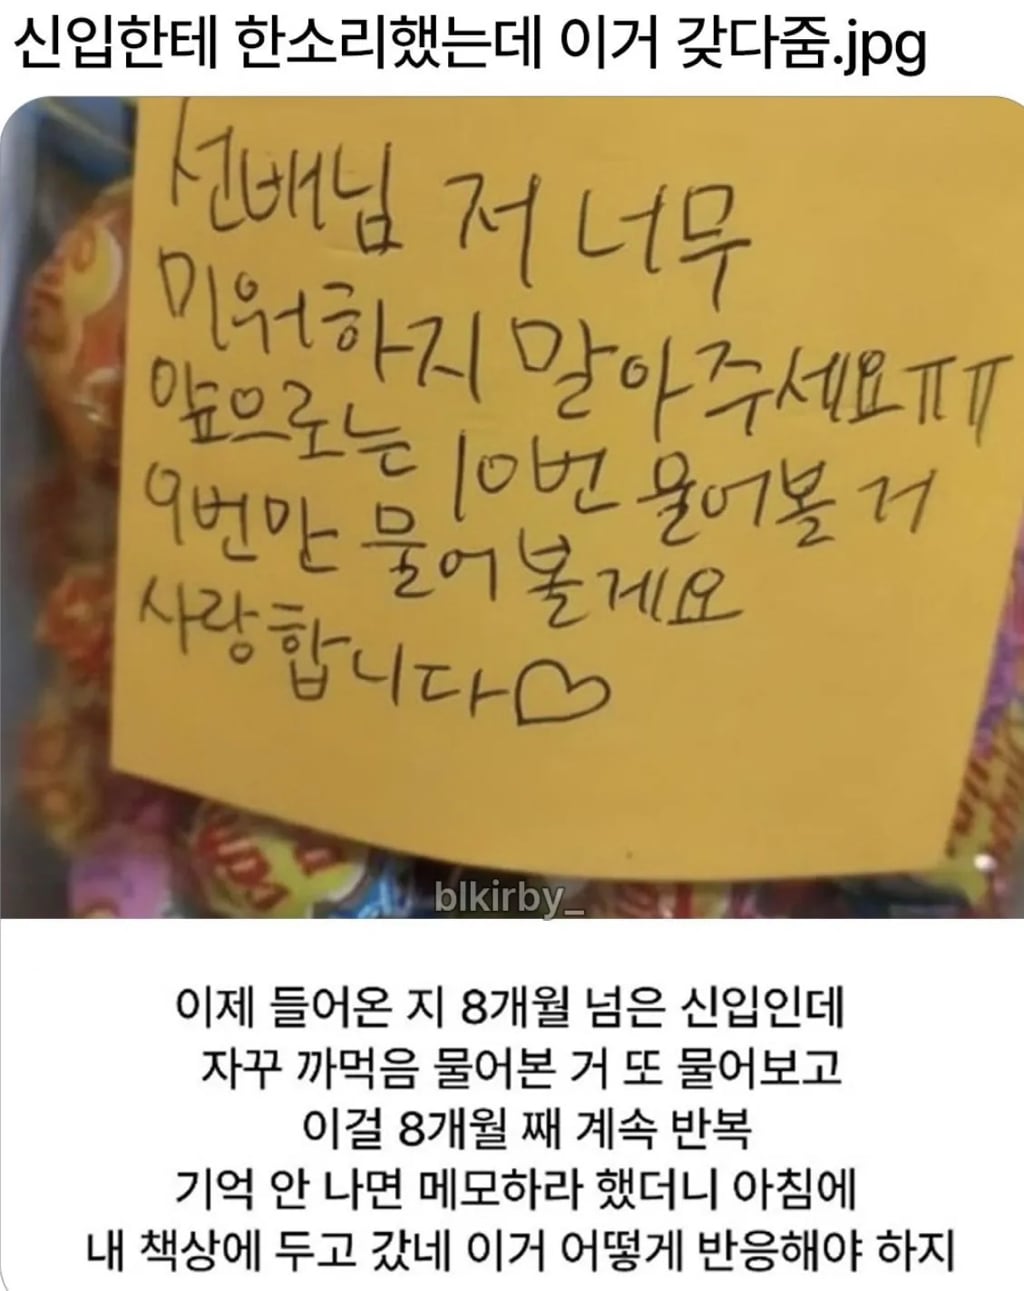 신입한테 한소리했는데 이거 갖다줌.jpg
선배님 저 너무
미워하지 말아주세요ㅠㅠ
앞으로는 10번 물어볼 거
9번만 물어볼게요
사랑합니다♡
blkirby_
이제 들어온 지 8개월 넘은 신입인데
자꾸 까먹음 물어본 거 또 물어보고
이걸 8개월 째 계속 반복
기억 안 나면 메모하라 했더니 아침에
내 책상에 두고 갔네 이거 어떻게 반응해야 하지